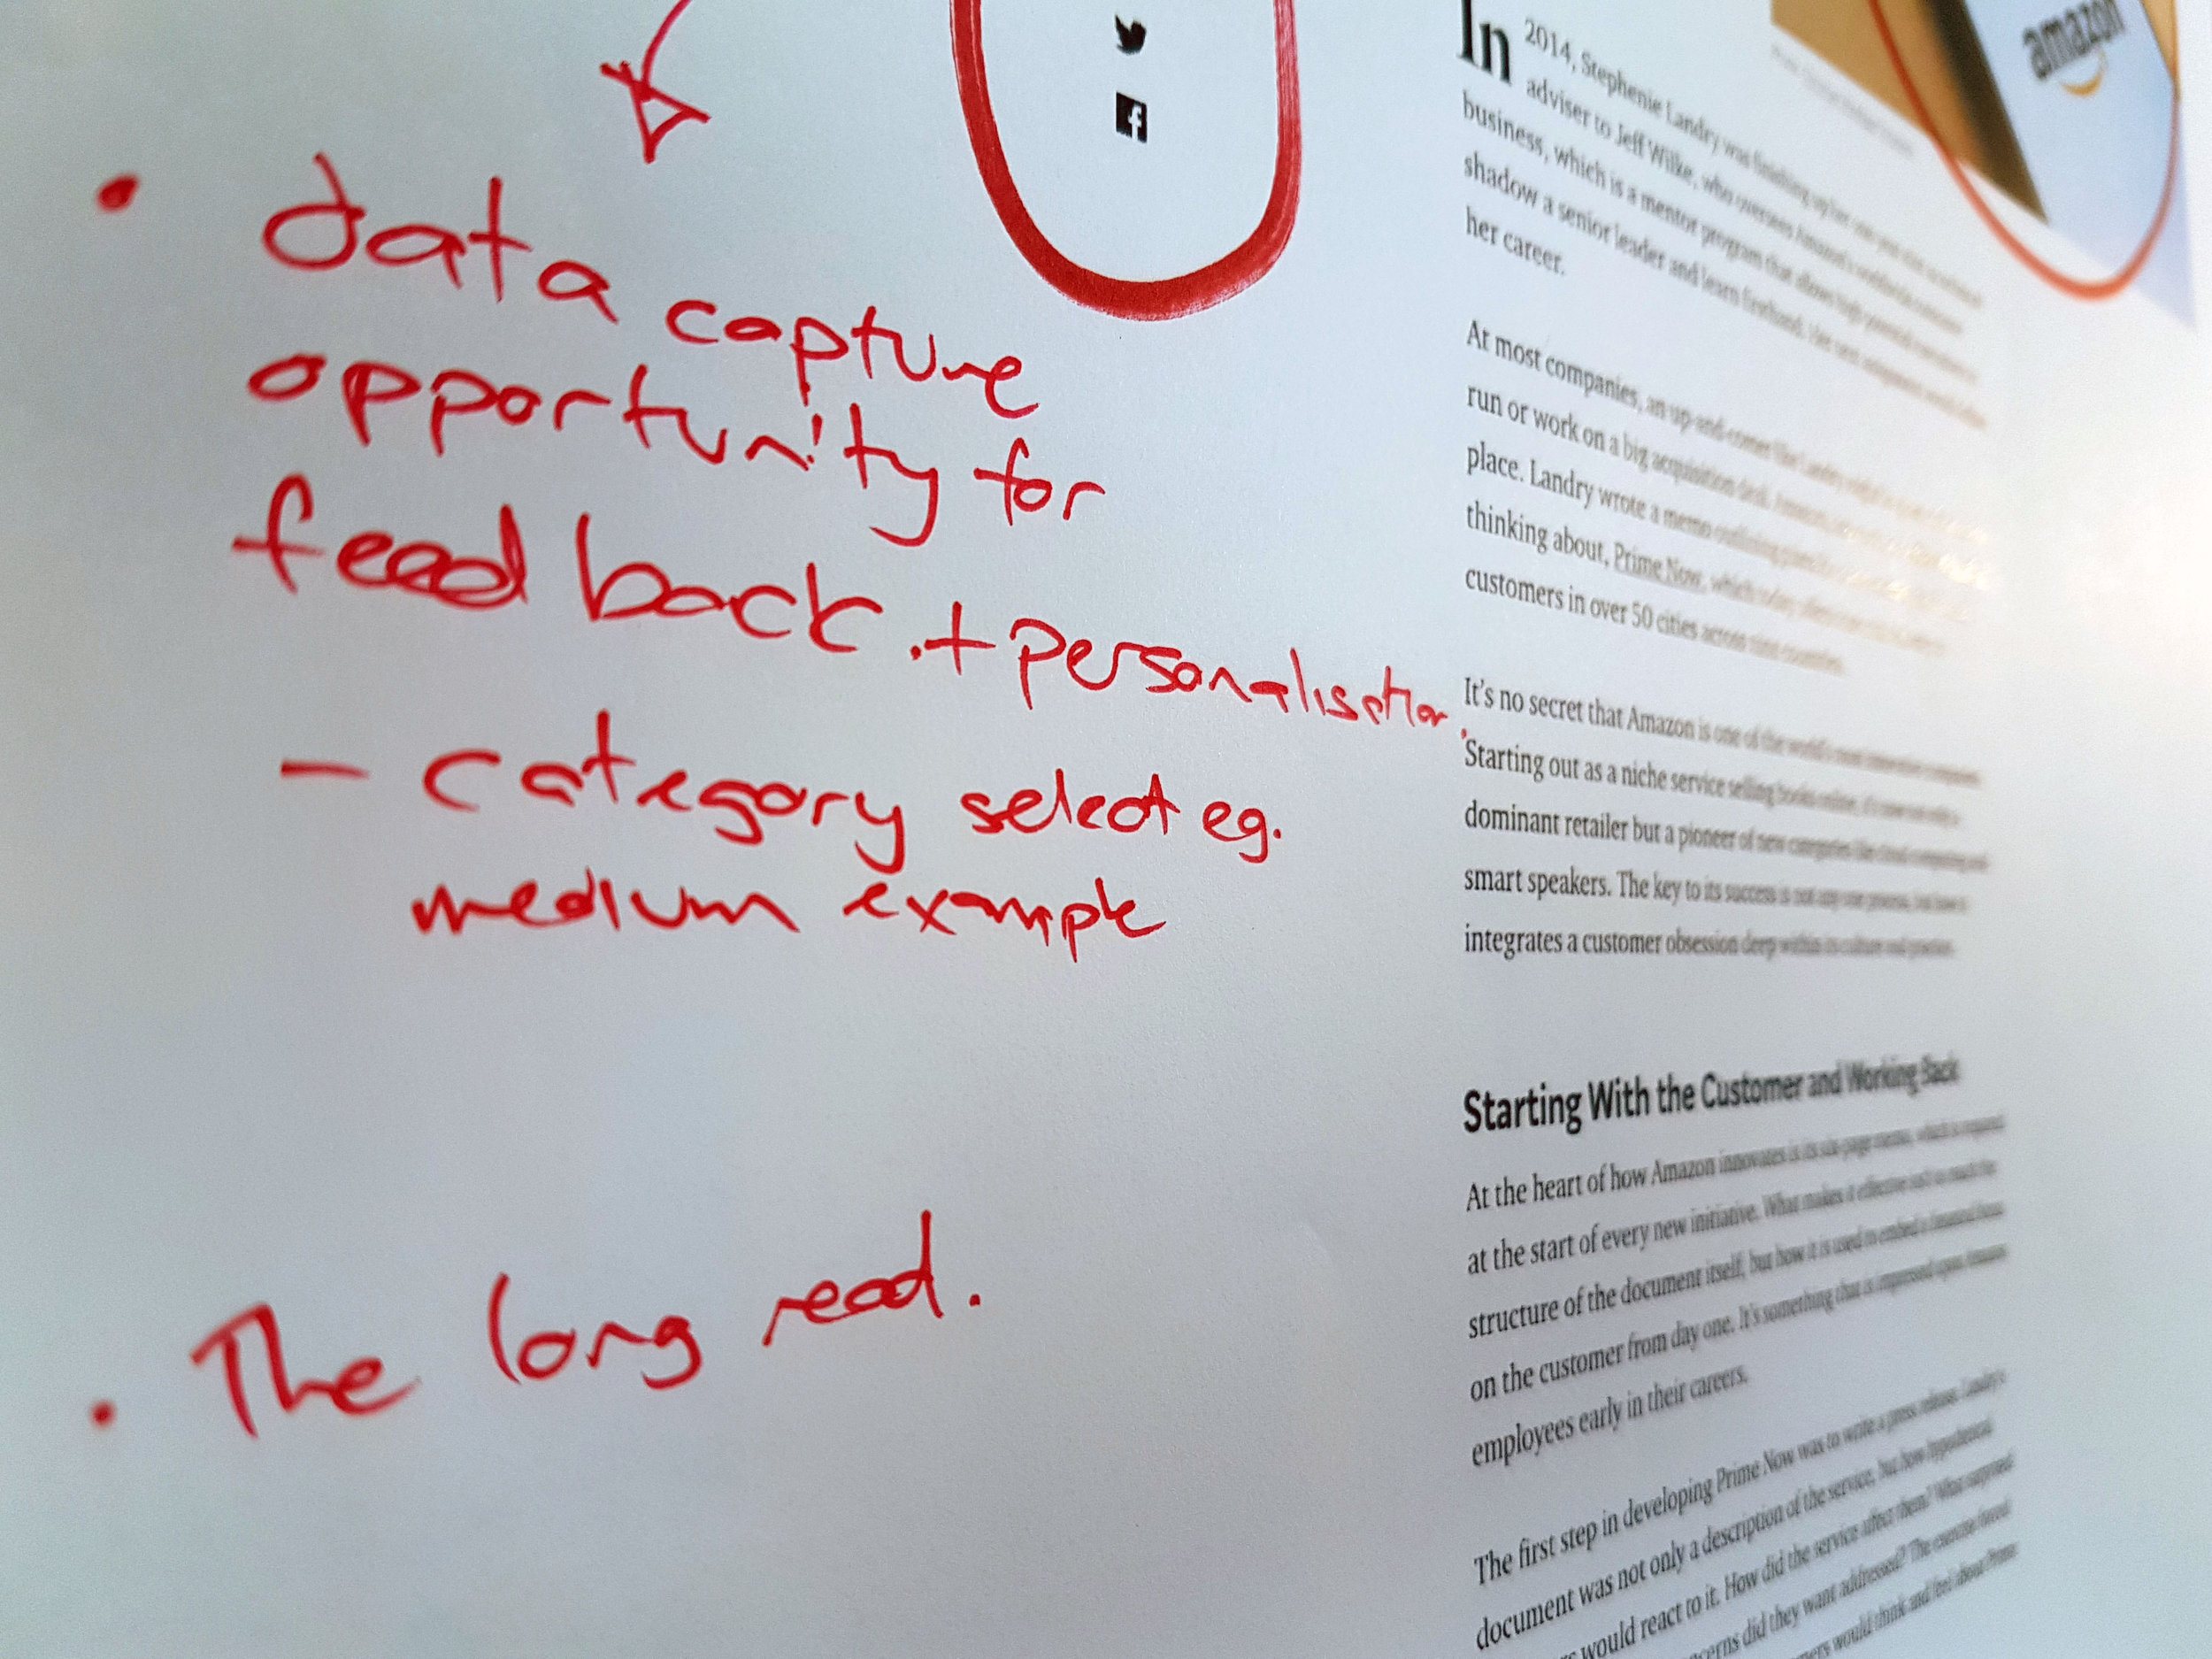 • data capture
opportunity for
feedback. + personalisation.
– category select eg.
medium example
• The long read.
amazon
In 2014, Stephenie Landry was finishing up her
adviser to Jeff Wilke, who oversees Amazon's worldwide consumer
business, which is a mentor program that allows high potential
shadow a senior leader and learn firsthand. Her next assignment would
her career.
At most companies, an up-and-comer like Landry might
run or work on a big acquisition deal. Amazon,
place. Landry wrote a memo outlining
thinking about, Prime Now, which today offers
customers in over 50 cities across nine countries.
It's no secret that Amazon is one of the world's most innovative companies.
Starting out as a niche service selling books online, it's now not only a
dominant retailer but a pioneer of new categories like cloud computing and
smart speakers. The key to its success is not any one process, but how it
integrates a customer obsession deep within its culture and practice.
Starting With the Customer and Working Back
At the heart of how Amazon innovates is its six-page memo, which is required
at the start of every new initiative. What makes it effective isn't so much the
structure of the document itself, but how it is used to embed a fanatical focus
on the customer from day one. It's something that is impressed upon Amazon
employees early in their careers.
The first step in developing Prime Now was to write a press release. Landry's
document was not only a description of the service, but how hypothetical
would react to it. How did the service affect them? What surprised
did they want addressed? The exercise forced
would think and feel about Prime